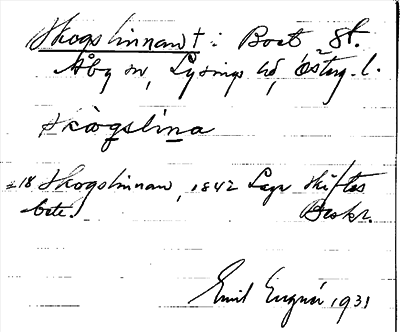 Skogslinnan † : Bost 8t.
Åby sn, Lysings hd, Österg. l.
skògslina
Skogslinnan, 1842 Laga skiftes
bete. Beskr.
Emil Eugnér 1931